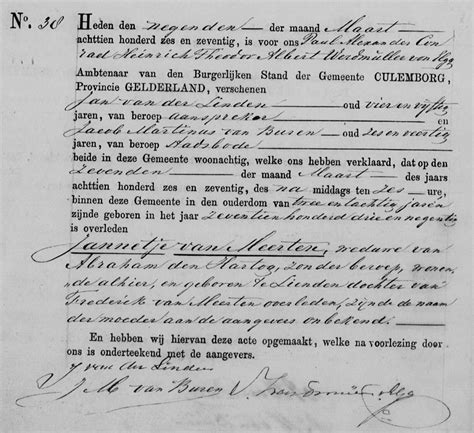 No. 38
Heden den negenden der maand Maart
achttien honderd zes en zeventig, is voor ons Paul Alexander Con
rad Heinrich Theodor Albert Werdmuller von Elgg
Ambtenaar van den Burgerlijken Stand der Gemeente CULEMBORG,
Provincie GELDERLAND, verschenen
Jan van der Linden oud vier en vijftig
jaren, van beroep aanspreker en
Jacob Martinus van Buren oud zes en veertig
jaren, van beroep Stadsbode
beide in deze Gemeente woonachtig, welke ons hebben verklaard, dat op den
zevenden der maand Maart des jaars
achttien honderd zes en zeventig, des na middags ten zes ure,
binnen deze Gemeente in den ouderdom van twee en tachtig jaren
zijnde geboren in het jaar zeventien honderd drie en negentig
is overleden
Jannetje van Meerten, weduwe van
Abraham den Hartog, zonder beroep, wonen
de alhier, en geboren te Lienden dochter van
Frederick van Meerten overleden, zijnde de naam
der moeder aan de aangevers onbekend.
En hebben wij hiervan deze acte opgemaakt, welke na voorlezing door
ons is onderteekend met de aangevers.
J van der Linden
J M van Buren